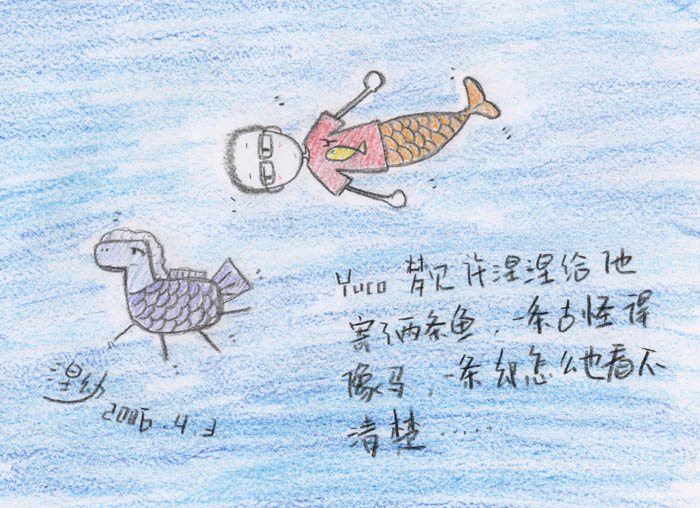 Yuco 梦见许涅涅给他
寄了两条鱼，一条古怪得
像马，一条却怎么也看不
清楚……
2009.4.3